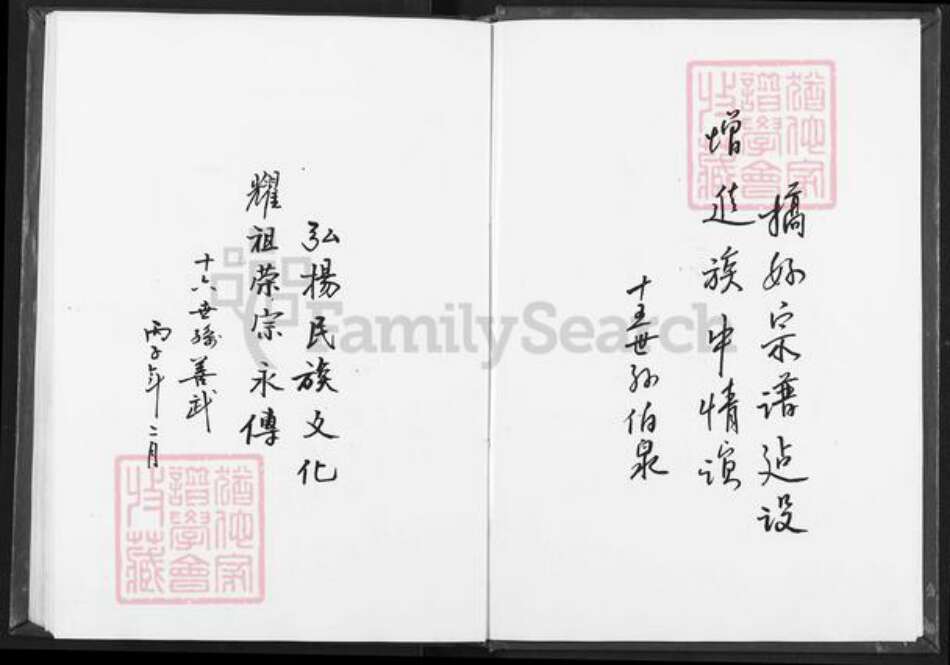 搞好宗谱建设
增进族中情谊
十五世孙伯泉
弘揚民族文化
耀祖荣宗永傳
十六世孫善武
丙子年二月
猶他家
譜學會
收藏
猶他家
譜學會
收藏
FamilySearch